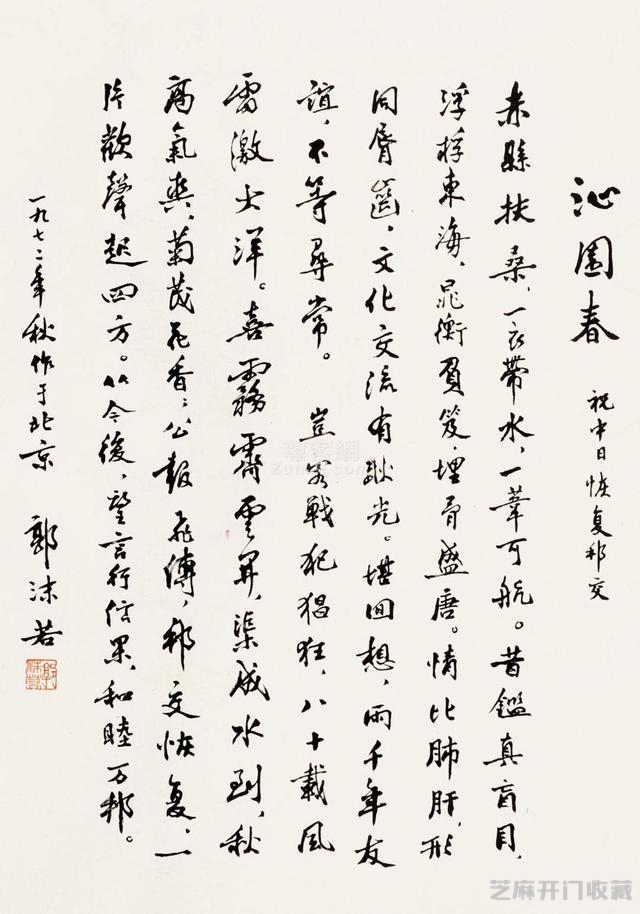 沁園春
祝中日恢复邦交
赤縣扶桑，一衣帶水，一葦可航。昔鑑真盲目，
浮桴東海，晁衡負笈，埋骨盛唐。情比肺肝，形
同唇齒，文化交流有耿光。堪回想，兩千年友
誼，不等尋常。 豈容戰犯猖狂，八十載風
雷激大洋。喜霧霽雲開，渠成水到，秋
高氣爽，菊茂花香；公報飛傳，邦交恢复，一
片歡聲起四方。从今後，望言行信果，和睦万邦。
一九七二年秋作于北京
郭沫若
尊客網
芝麻开门收藏